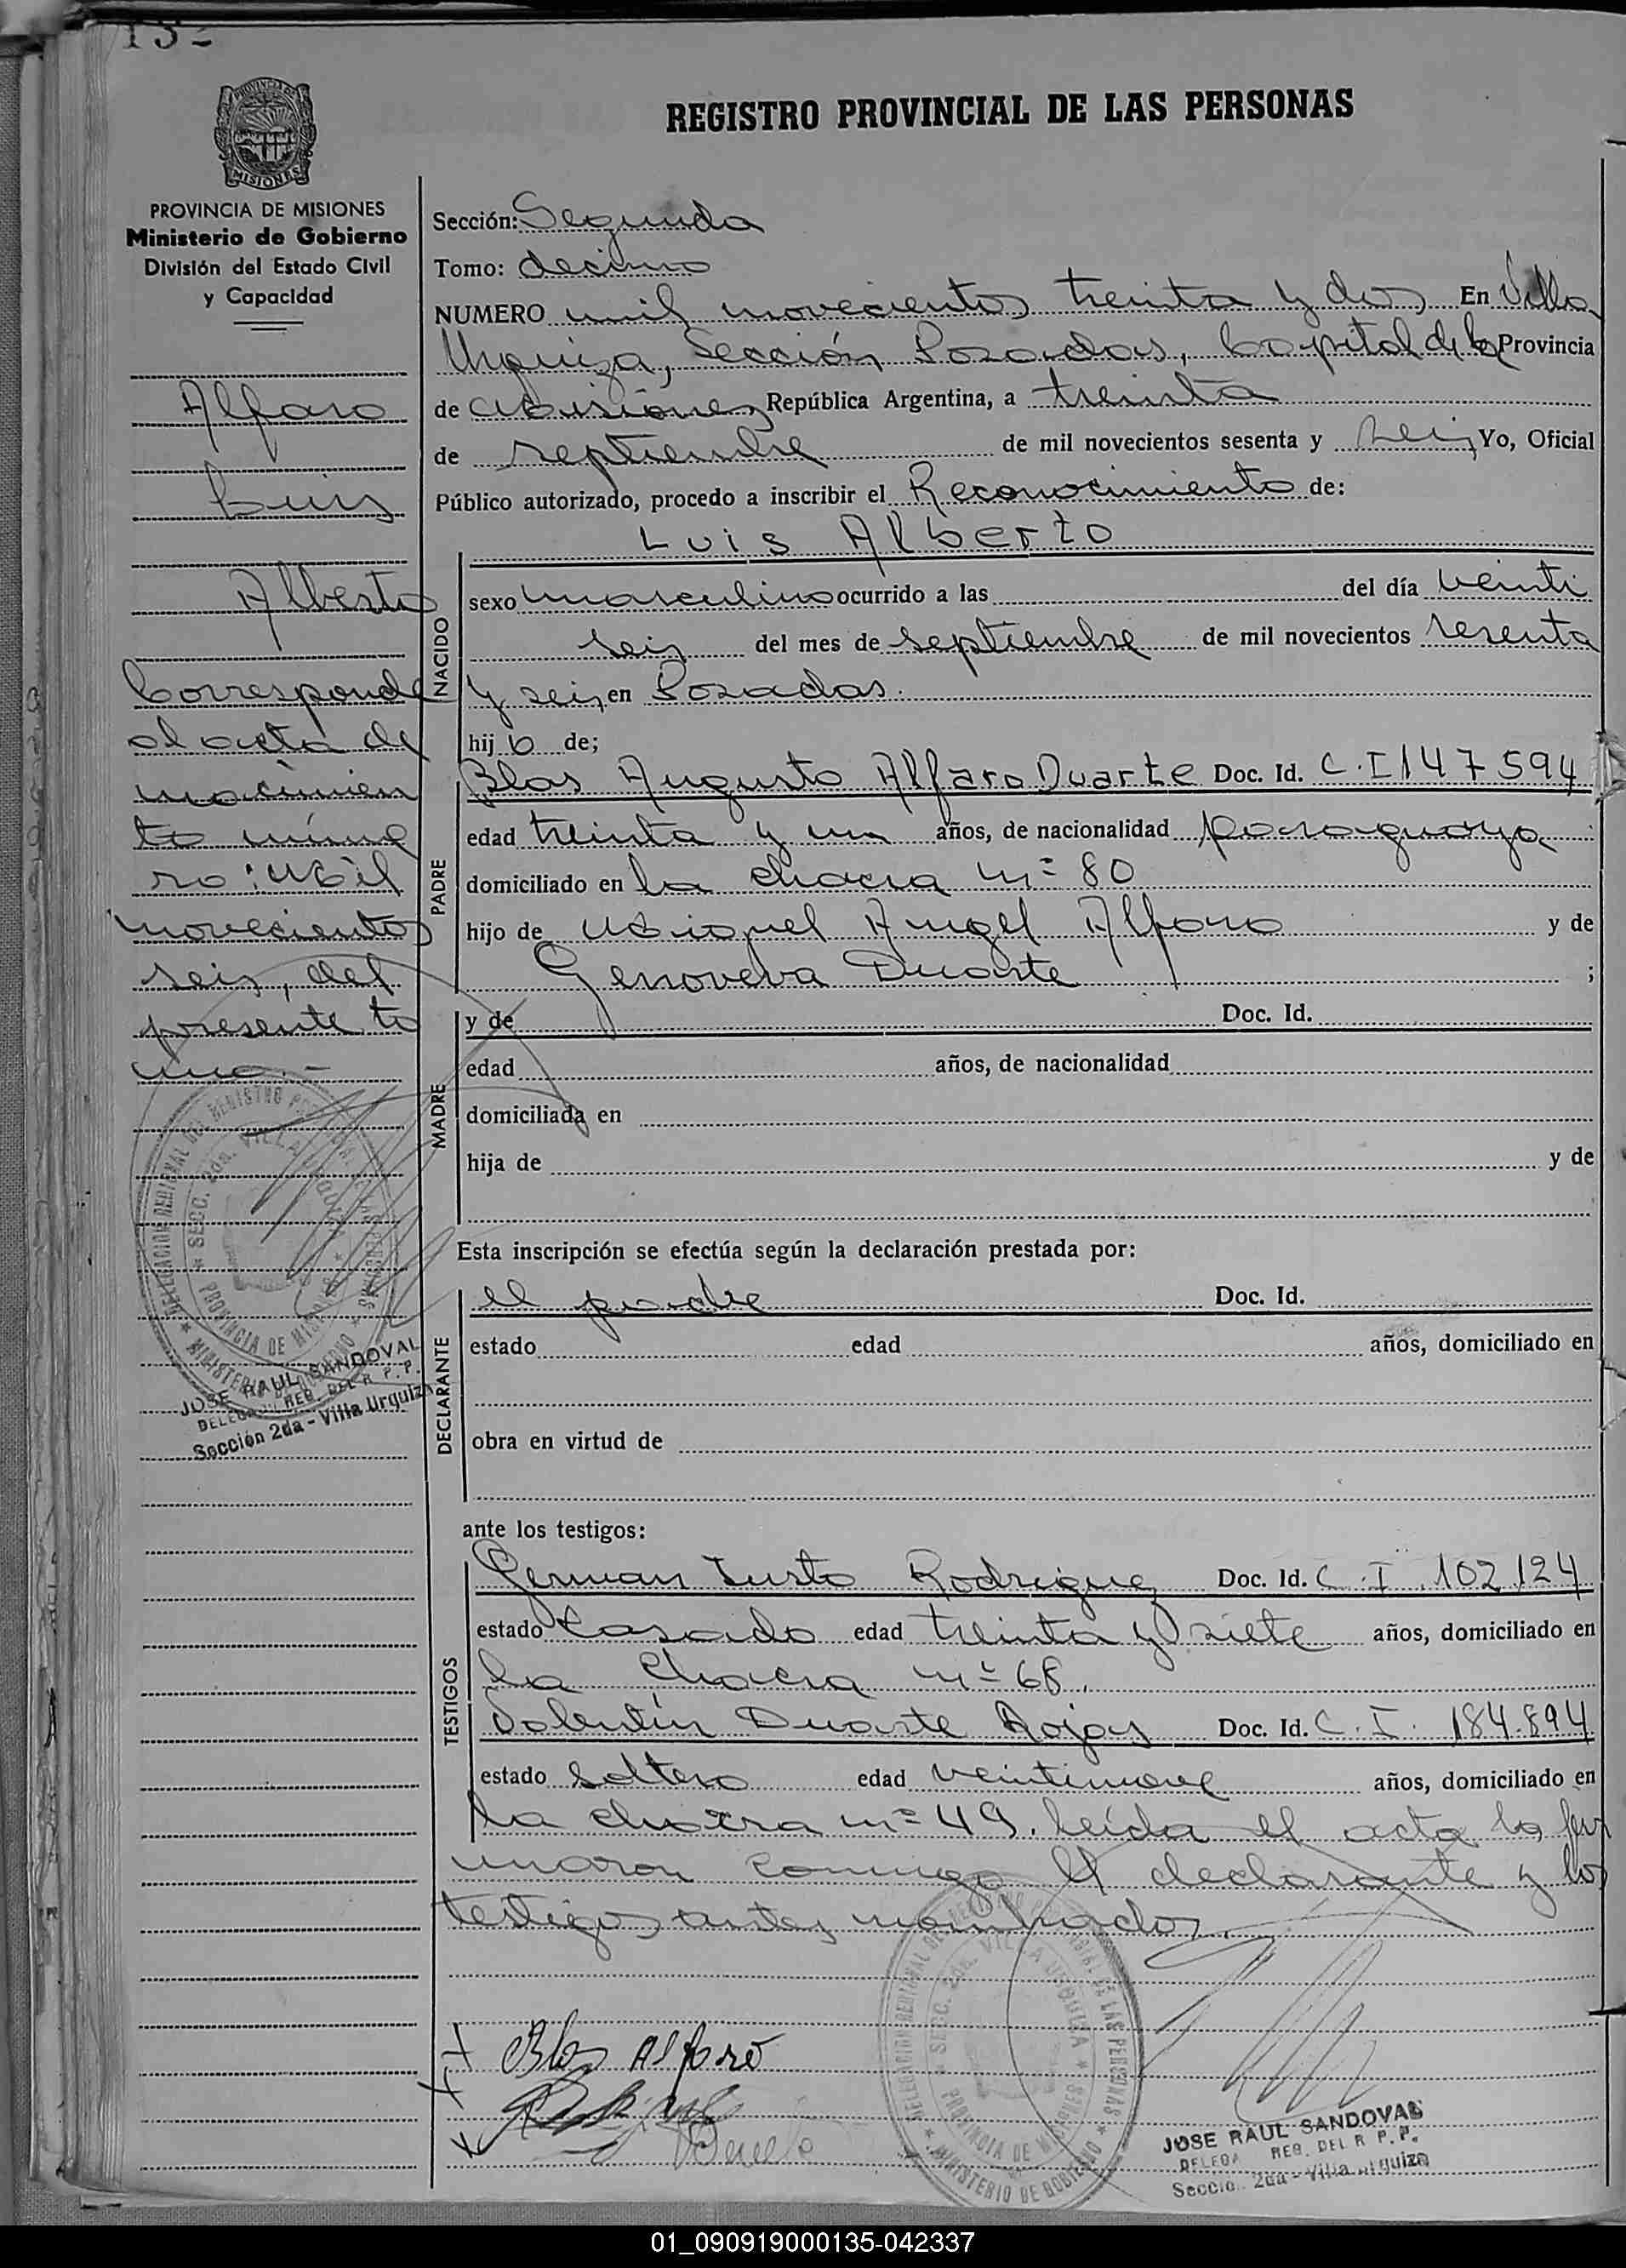 132
REGISTRO PROVINCIAL DE LAS PERSONAS
MISIONES
PROVINCIA DE MISIONES
Ministerio de Gobierno
División del Estado Civil
y Capacidad
Alfaro
Luis
Alberto
Corresponde
al acta de
nacimien
to núme
ro: Mil
novecientos
seis, del
presente to
mo.-
JOSE RAUL SANDOVAL
REG. DEL R. P. P.
Sección 2da - Villa Urquiza
Sección: Segunda
Tomo: decimo
NUMERO mil novecientos treinta y dos En Villa
Urquiza, Sección Posadas, Capital de la Provincia
de Misiones República Argentina, a treinta
de septiembre de mil novecientos sesenta y seis Yo, Oficial
Público autorizado, procedo a inscribir el Reconocimiento de:
Luis Alberto
NACIDO
sexo masculino ocurrido a las del día veinti
seis del mes de septiembre de mil novecientos sesenta
y seis en Posadas.
hijo de;
PADRE
Blas Augusto Alfaro Duarte Doc. Id. C.I 147594
edad treinta y un años, de nacionalidad paraguaya
domiciliado en la chacra nº 80
hijo de Miguel Angel Alfaro y de
Genoveva Duarte ;
MADRE
y de Doc. Id.
edad años, de nacionalidad
domiciliada en
hija de y de
Esta inscripción se efectúa según la declaración prestada por:
DECLARANTE
el padre Doc. Id.
estado edad años, domiciliado en
obra en virtud de
ante los testigos:
TESTIGOS
German Justo Rodriguez Doc. Id. C.I. 102.124
estado Casado edad treinta y siete años, domiciliado en
la chacra nº 68.
Valentín Duarte Rojas Doc. Id. C.I. 184.894
estado Soltero edad veintinueve años, domiciliado en
la chacra nº 49. leída el acta la fir
maron conmigo el declarante y los
testigos antes nombrados.
Blas Alfaro
JOSE RAUL SANDOVAL
REG. DEL R. P. P.
01_090919000135-042337